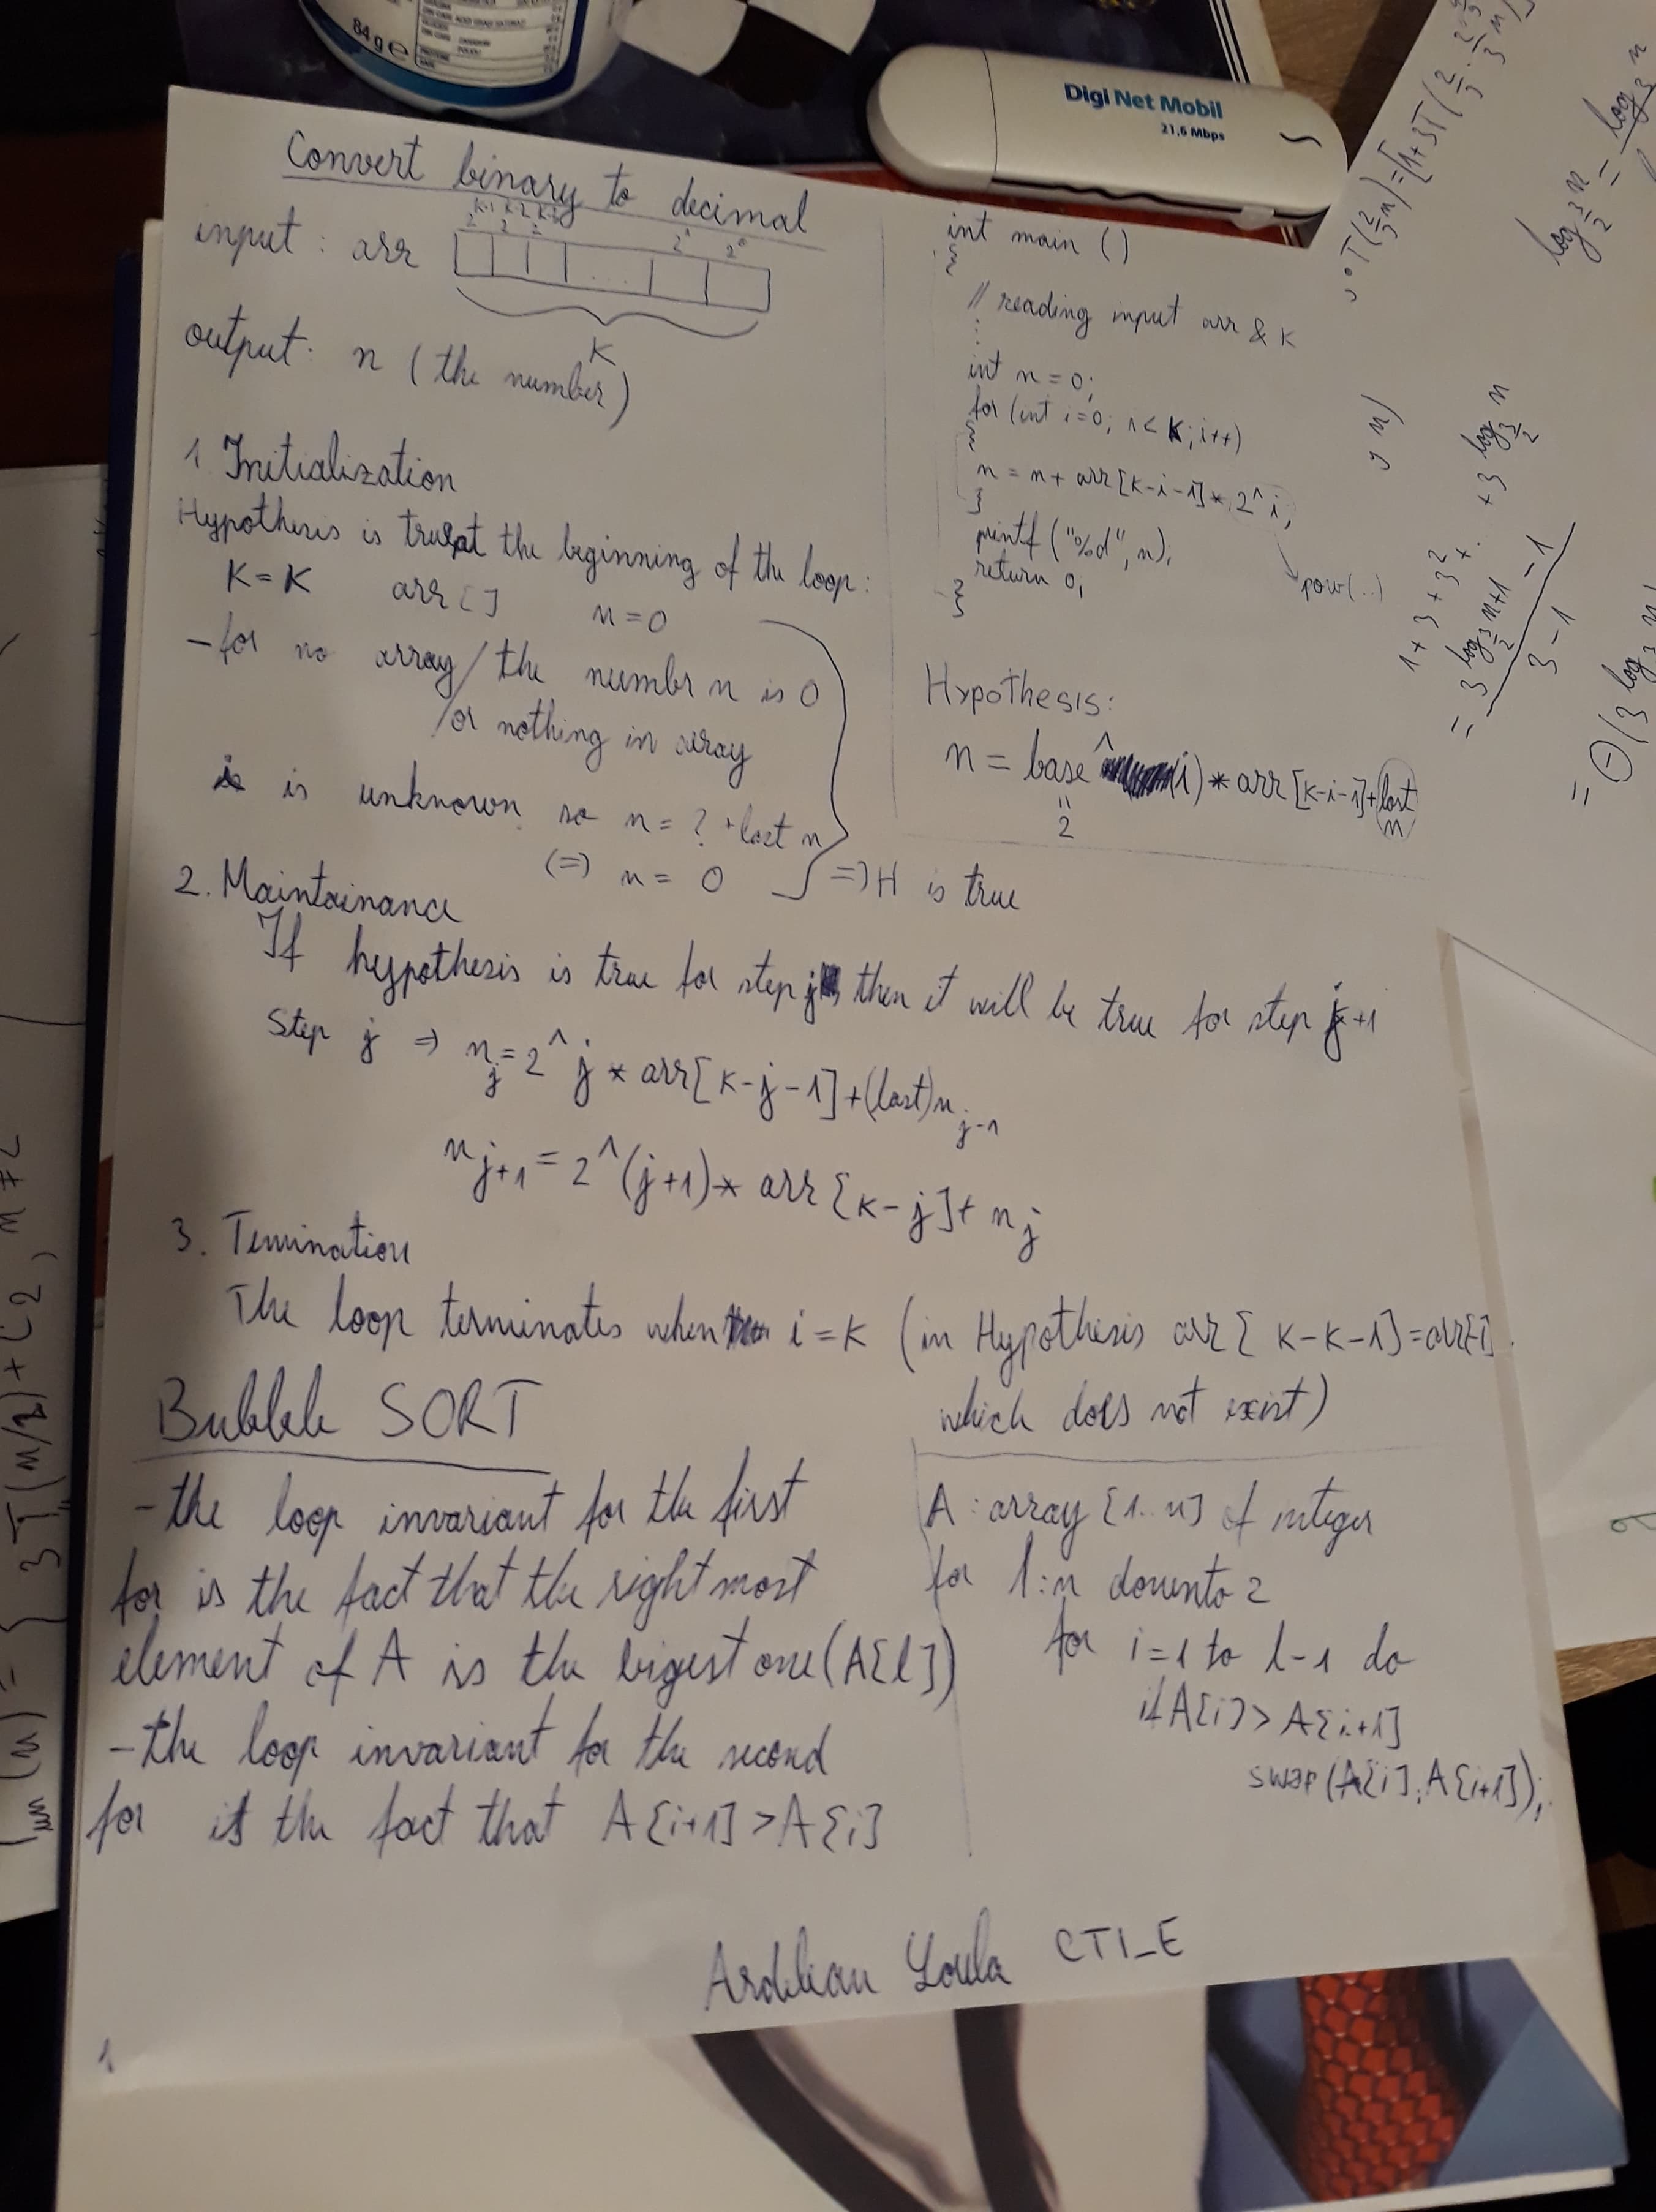 84g e
Digi Net Mobil
21,6 Mbps
Convert binary to decimal
input : arr
2^k-1 2^k-2 2^k-3 ... 2^1 2^0
K
output: n (the number)
1 Initialization
Hypothesis is true at the beginning of the loop:
K=K arr[] n=0
- for no array / the numbr n is 0
/or nothing in array
i is unknown so n = ? + last n
(=) n = 0 => H is true
int main ()
{
// reading input arr & K
:
int n=0;
for (int i=0; i<K; i++)
{
n = n + arr[K-i-1] * 2^i;
}
printf ("%d", n);
return 0;
}
pow(..)
Hypothesis:
n = base ^ (i) * arr [K-i-1] + last n
"
2
2. Maintainance
If hypothesis is true for step j, then it will be true for step j+1
Step j => n j = 2^j * arr[K-j-1] + (last) n j-1
n j+1 = 2^(j+1) * arr[K-j] + n j
3. Temination
The loop terminates when i=K (in Hypothesis arr[K-K-1]=arr[-1]
which does not exist)
Bubble SORT
- the loop invariant for the first
for is the fact that the right most
element of A is the bigest one (A[l])
- the loop invariant for the second
for is the fact that A[i+1] > A[i]
A : array [1..n] of integer
for l:n downto 2
for i=1 to l-1 do
if A[i] > A[i+1]
swap (A[i], A[i+1]);
Ardelean Loula CTI_E
1
T(2/3 n) = [1+3T(2/3 · 2/3 n)]
log 3/2 n = log 3 n
1+3+3^2+..+3 log 3/2 n
= 3 log 3/2 n+1 - 1
3-1
= Θ(3 log 3 n)
3T(n/2)+C2, n≠2